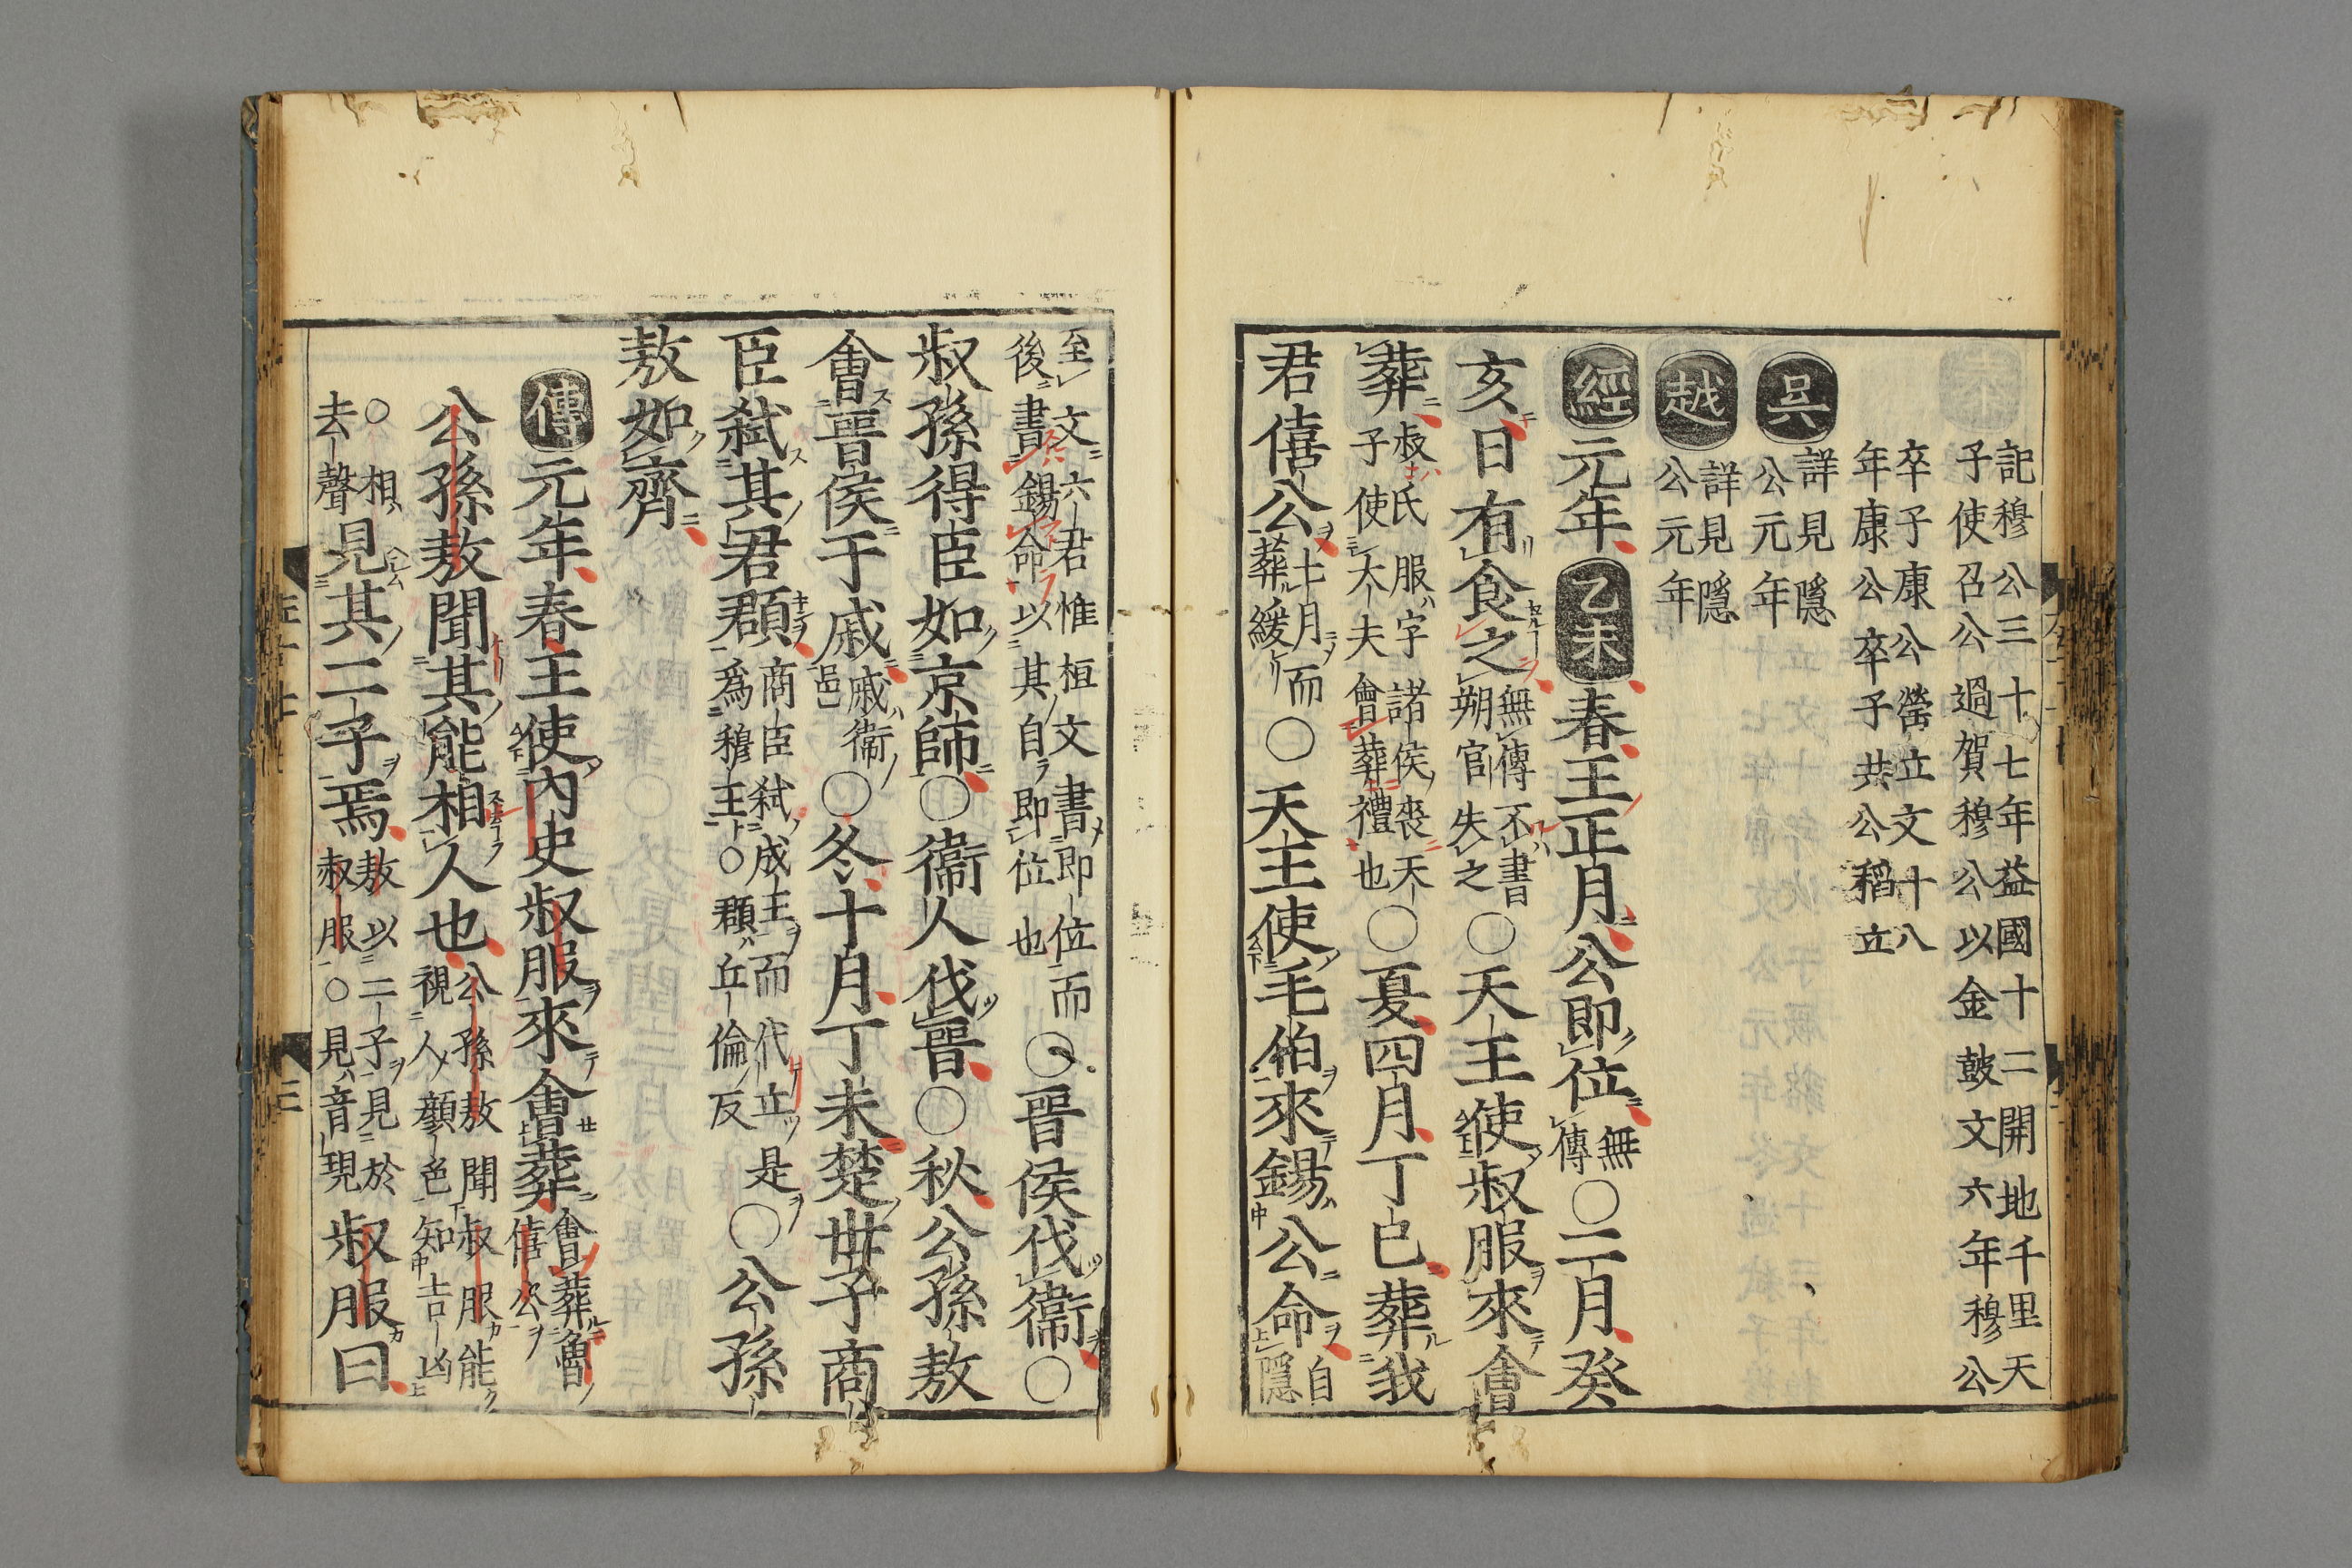 記穆公三十七年益國十二開地千里天
子使召公過賀穆公以金鼓文六年穆公
卒子康公罃立文十八
年康公卒子共公稻立
吳 詳見隱
公元年
越 詳見隱
公元年
經 元年 乙未 春王正月公即位 無
傳 ○二月癸
亥日有食之 無傳不書
朔官失之 ○天王使叔服來會
葬 叔氏服字諸侯喪天
子使大夫會葬禮也 ○夏四月丁巳葬我
君僖公 七月而
葬緩 ○天王使毛伯來錫公命 自
隱
至文六君惟桓文書即位而
後書錫命以其自即位也 ○晉侯伐衞○
叔孫得臣如京師○衞人伐晉○秋公孫敖
會晉侯于戚 戚衞
邑 ○冬十月丁未楚世子商
臣弑其君頵 商臣弑成王而代立是
爲穆王○頵丘倫反 ○公孫
敖如齊
傳 元年春王使內史叔服來會葬 會葬魯
僖公
公孫敖聞其能相人也 公孫敖聞叔服能
視人顏色知吉凶
○相
去聲 見其二子焉 敖以二子見於
叔服○見音現 叔服曰